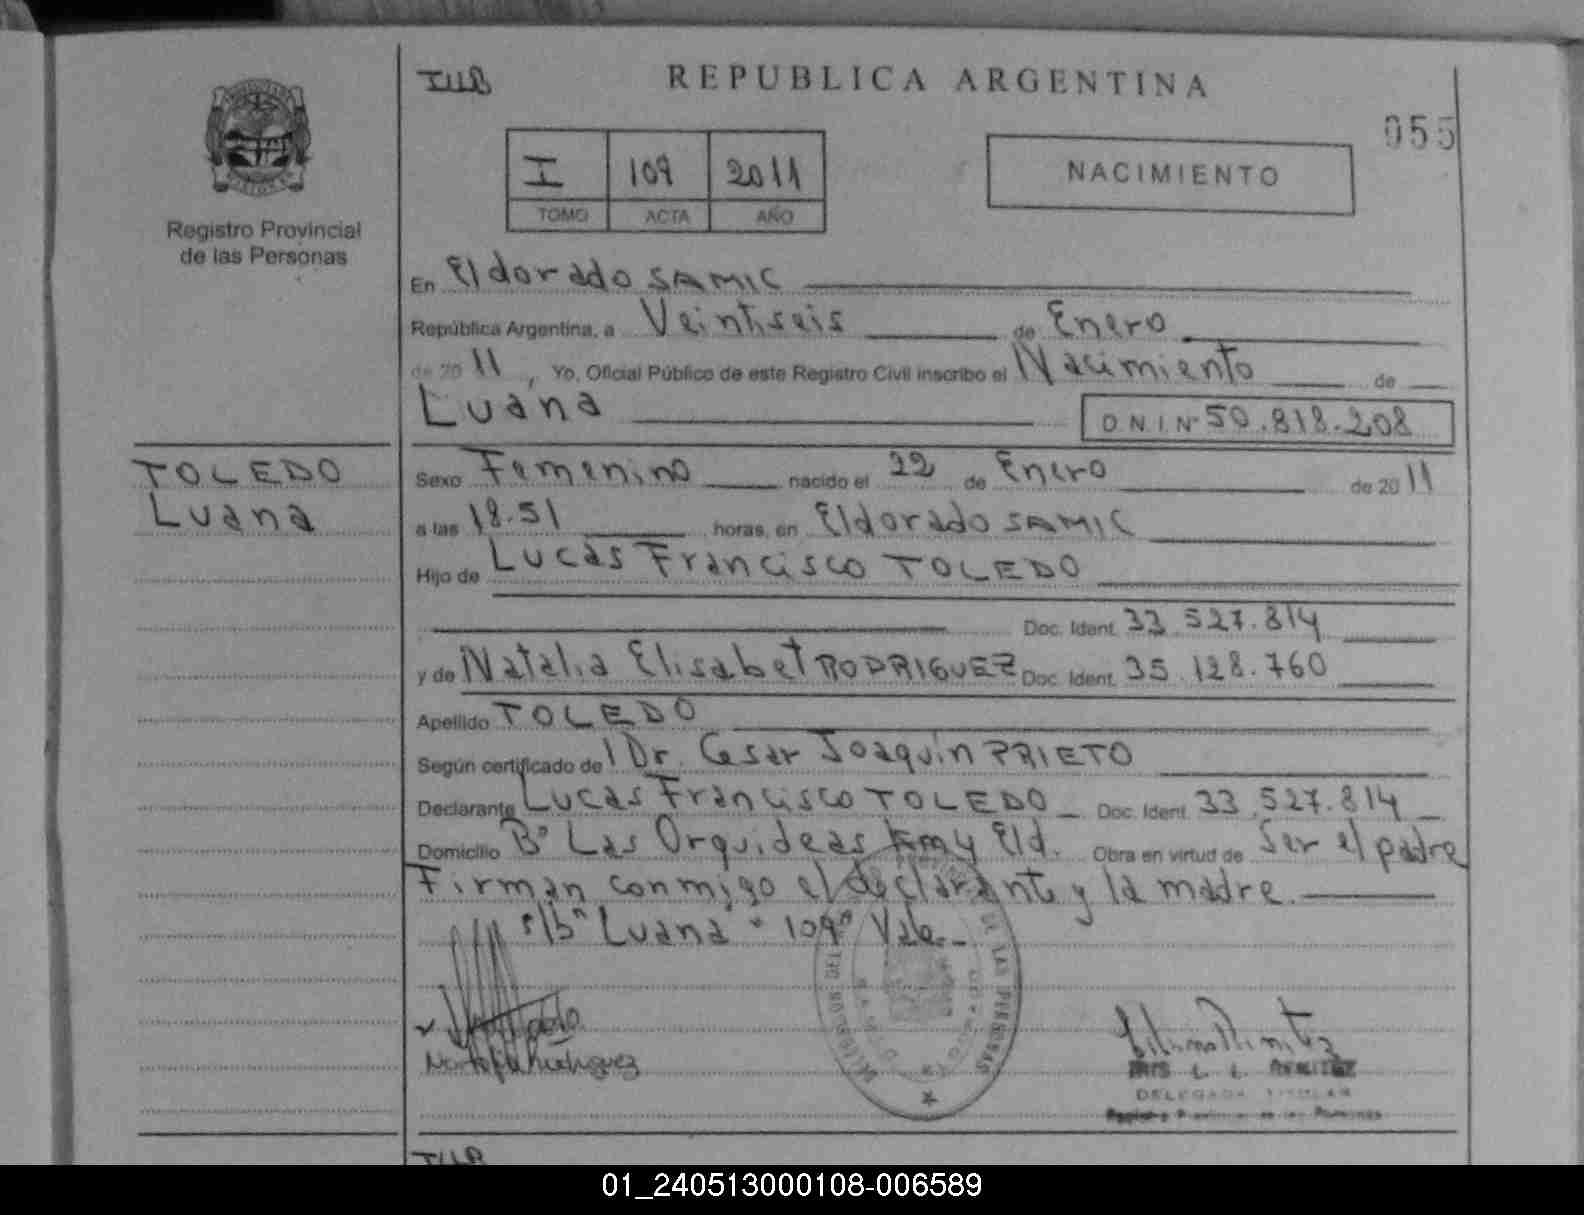 IIIB
REPUBLICA ARGENTINA
055
I 109 2011
TOMO ACTA AÑO
NACIMIENTO
Registro Provincial
de las Personas
En Eldorado SAMIC
República Argentina, a Veintiseis de Enero
de 2011, Yo, Oficial Público de este Registro Civil inscribo el Nacimiento de
Luana
D.N.I. Nº 50.818.208
TOLEDO
Luana
Sexo Femenino nacido el 22 de Enero de 2011
a las 18.51 horas, en Eldorado SAMIC
Hijo de Lucas Francisco TOLEDO
Doc. Ident. 33.527.814
y de Natalia Elisabet RODRIGUEZ Doc. Ident. 35.128.760
Apellido TOLEDO
Según certificado del Dr. Cesar Joaquín PRIETO
Declarante Lucas Francisco TOLEDO Doc. Ident. 33.527.814
Domicilio Bº Las Orquideas Km 4 Eld. Obra en virtud de Ser el padre
Firman conmigo el declarante y la madre.
s/b "Luana" "109" Vale.
Natalia Rodriguez
DE LAS PERSONAS
DELEGADA TITULAR
Registro Provincial de las Personas
01_240513000108-006589